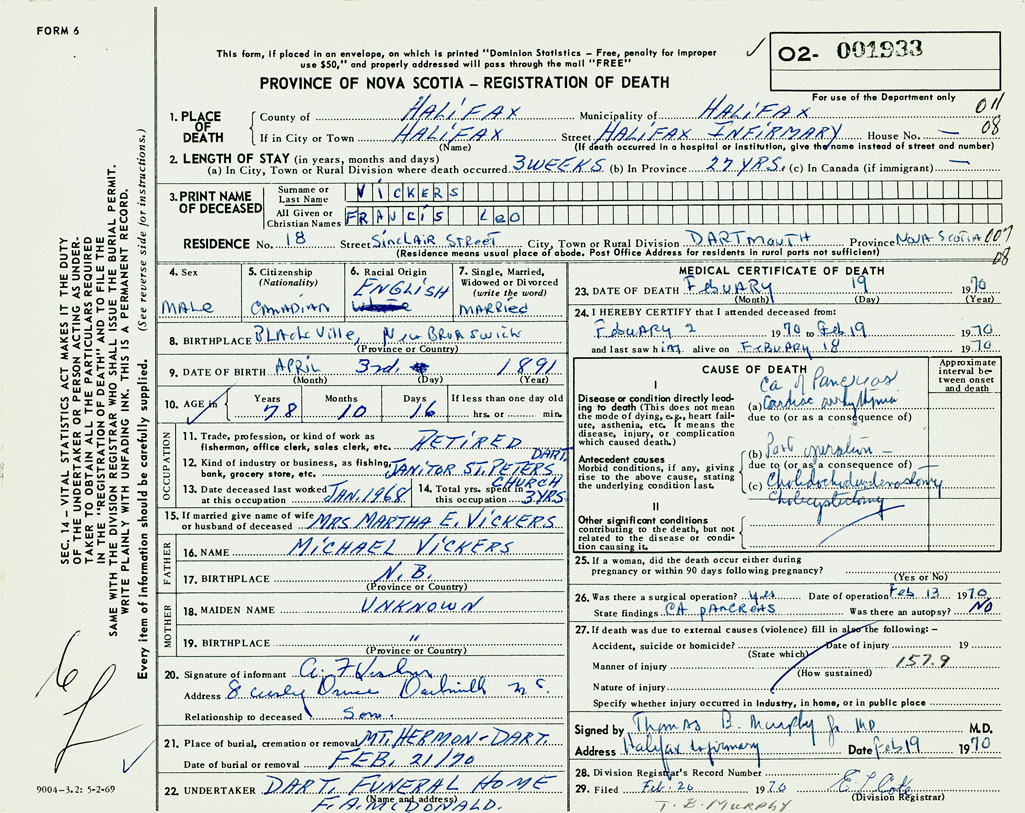 FORM 6
This form, if placed in an envelope, on which is printed "Dominion Statistics – Free, penalty for improper
use $50," and properly addressed will pass through the mail "FREE"
O2- 001933
PROVINCE OF NOVA SCOTIA – REGISTRATION OF DEATH
For use of the Department only
1. PLACE OF DEATH
County of HALIFAX Municipality of HALIFAX 011
If in City or Town HALIFAX Street HALIFAX INFIRMARY House No. — 08
(Name) (If death occurred in a hospital or institution, give the name instead of street and number)
2. LENGTH OF STAY (in years, months and days)
(a) In City, Town or Rural Division where death occurred 3 WEEKS (b) In Province 27 YRS. (c) In Canada (if immigrant) —
3. PRINT NAME OF DECEASED
Surname or Last Name VICKERS
All Given or Christian Names FRANCIS LEO
RESIDENCE No. 18 Street SINCLAIR STREET City, Town or Rural Division DARTMOUTH Province NOVA SCOTIA 007
(Residence means usual place of abode. Post Office Address for residents in rural parts not sufficient) 08
4. Sex MALE
5. Citizenship (Nationality) CANADIAN
6. Racial Origin ENGLISH
7. Single, Married, Widowed or Divorced (write the word) MARRIED
8. BIRTHPLACE BLACKVILLE, NEW BRUNSWICK
(Province or Country)
9. DATE OF BIRTH APRIL 3rd. 1891
(Month) (Day) (Year)
10. AGE in Years 78 Months 10 Days 16 If less than one day old
hrs. or min.
OCCUPATION
11. Trade, profession, or kind of work as
fisherman, office clerk, sales clerk, etc. RETIRED
12. Kind of industry or business, as fishing,
bank, grocery store, etc. JANITOR ST. PETERS CHURCH DART.
13. Date deceased last worked
at this occupation JAN. 1968
14. Total yrs. spent in
this occupation 3 YRS.
15. If married give name of wife
or husband of deceased MRS MARTHA E. VICKERS
FATHER
16. NAME MICHAEL VICKERS
17. BIRTHPLACE N.B.
(Province or Country)
MOTHER
18. MAIDEN NAME UNKNOWN
19. BIRTHPLACE "
(Province or Country)
20. Signature of informant
Address 8
Relationship to deceased Son.
21. Place of burial, cremation or removal MT. HERMON – DART.
Date of burial or removal FEB. 21/70
22. UNDERTAKER DART. FUNERAL HOME
(Name and address)
F. A. McDONALD.
MEDICAL CERTIFICATE OF DEATH
23. DATE OF DEATH FEBUARY 19 1970
(Month) (Day) (Year)
24. I HEREBY CERTIFY that I attended deceased from:
FEBUARY 2 1970 to FEB 19 1970
and last saw him alive on FEBUARY 18 1970
CAUSE OF DEATH
Approximate interval between onset and death
I
Disease or condition directly leading to death (This does not
mean the mode of dying, e.g., heart failure, asthenia, etc. It means the
disease, injury, or complication
which caused death.)
Ca of Pancreas
(a) Cardiac arrythmia
due to (or as a consequence of)
Antecedent causes
Morbid conditions, if any, giving
rise to the above cause, stating
the underlying condition last.
(b) Post operation –
due to (or as a consequence of)
(c) Choledochoduodenostomy
Cholecystectomy
II
Other significant conditions
contributing to the death, but not
related to the disease or condition
causing it.
25. If a woman, did the death occur either during
pregnancy or within 90 days following pregnancy?
(Yes or No)
26. Was there a surgical operation? yes Date of operation Feb 13 1970
State findings CA PANCREAS Was there an autopsy? NO
27. If death was due to external causes (violence) fill in also the following: –
Accident, suicide or homicide? Date of injury 19
(State which)
Manner of injury 157.9
(How sustained)
Nature of injury
Specify whether injury occurred in industry, in home, or in public place
Signed by Thomas B. Murphy Jr. MD M.D.
Address Halifax Infirmary Date Feb 19 1970
28. Division Registrar's Record Number
29. Filed Feb. 20 1970
(Division Registrar)
T. B. MURPHY
SEC. 14 – VITAL STATISTICS ACT MAKES IT THE DUTY
OF THE UNDERTAKER OR PERSON ACTING AS UNDER-
TAKER TO OBTAIN ALL THE PARTICULARS REQUIRED
IN THE "REGISTRATION OF DEATH" AND TO FILE THE
SAME WITH THE DIVISION REGISTRAR WHO SHALL ISSUE THE BURIAL PERMIT.
WRITE PLAINLY WITH UNFADING INK. THIS IS A PERMANENT RECORD.
Every item of information should be carefully supplied. (See reverse side for instructions.)
9004-3.2: 5-2-69